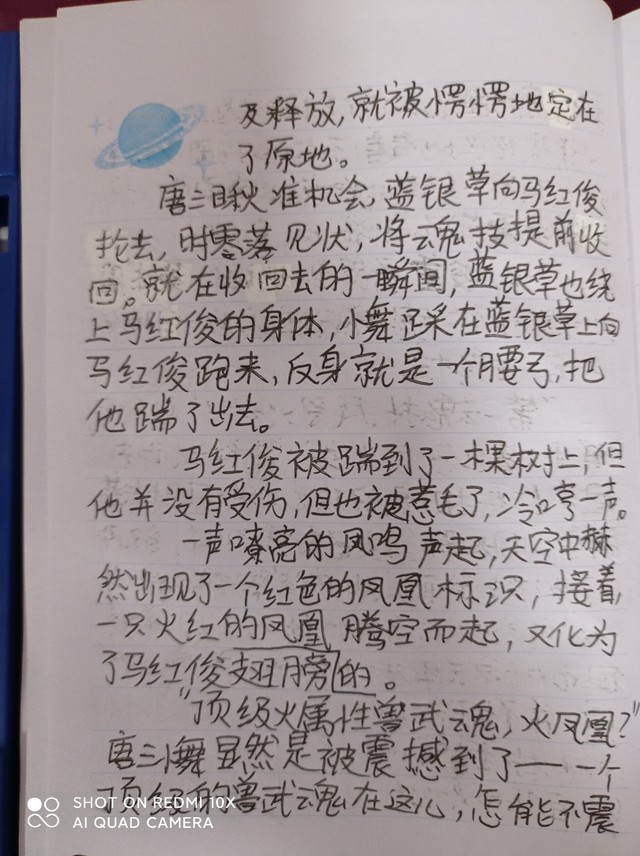 及释放,就被愣愣地定在
了原地。
唐三瞅准机会,蓝银草向马红俊
抡去,时零落见状,将魂技提前收
回。就在收回去的一瞬间,蓝银草也绕
上马红俊的身体,小舞踩在蓝银草上向
马红俊跑来,反身就是一个腰弓,把
他踹了出去。
马红俊被踹到了一棵树上,但
他并没有受伤,但也被惹毛了,冷哼一声。
一声嘹亮的凤鸣声起,天空中赫
然出现了一个红色的凤凰标识,接着,
一只火红的凤凰腾空而起,又化为
了马红俊翅膀的。
“顶级火属性兽武魂,火凤凰?”
唐三小舞显然是被震撼到了——一个
顶级的兽武魂在这儿,怎能不震
SHOT ON REDMI 10X
AI QUAD CAMERA